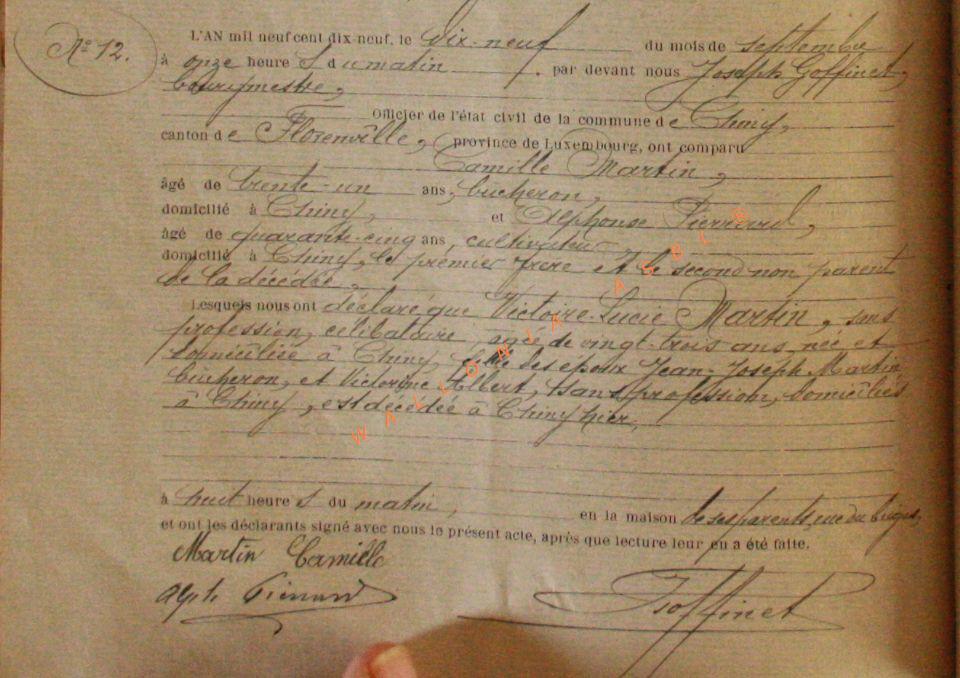 Nº 12.
L'AN mil neuf cent dix-neuf, le dix-neuf du mois de septembre
à onze heure s du matin, par devant nous Joseph Goffinet,
bourgmestre,
Officier de l'état civil de la commune de Chiny,
canton de Florenville, province de Luxembourg, ont comparu
Camille Martin,
âgé de trente-un ans, bucheron,
domicilié à Chiny, et Alphonse Pierrard,
âgé de quarante-cinq ans, cultivateur,
domicilié à Chiny, le premier frère et le second non parent
de la décédée.
Lesquels nous ont déclaré que Victoire-Lucie Martin, sans
profession, célibataire, agée de vingt-trois ans, née et
domiciliée à Chiny, fille des époux Jean-Joseph Martin
bucheron, et Victorine Albert, sans profession, domiciliés
à Chiny, est décédée à Chiny hier,
à huit heure s du matin, en la maison de ses parents, rue du
et ont les déclarants signé avec nous le présent acte, après que lecture leur en a été faite.
Martin Camille
Alph Pierrard
JGoffinet
WALLONIA ASBL ©